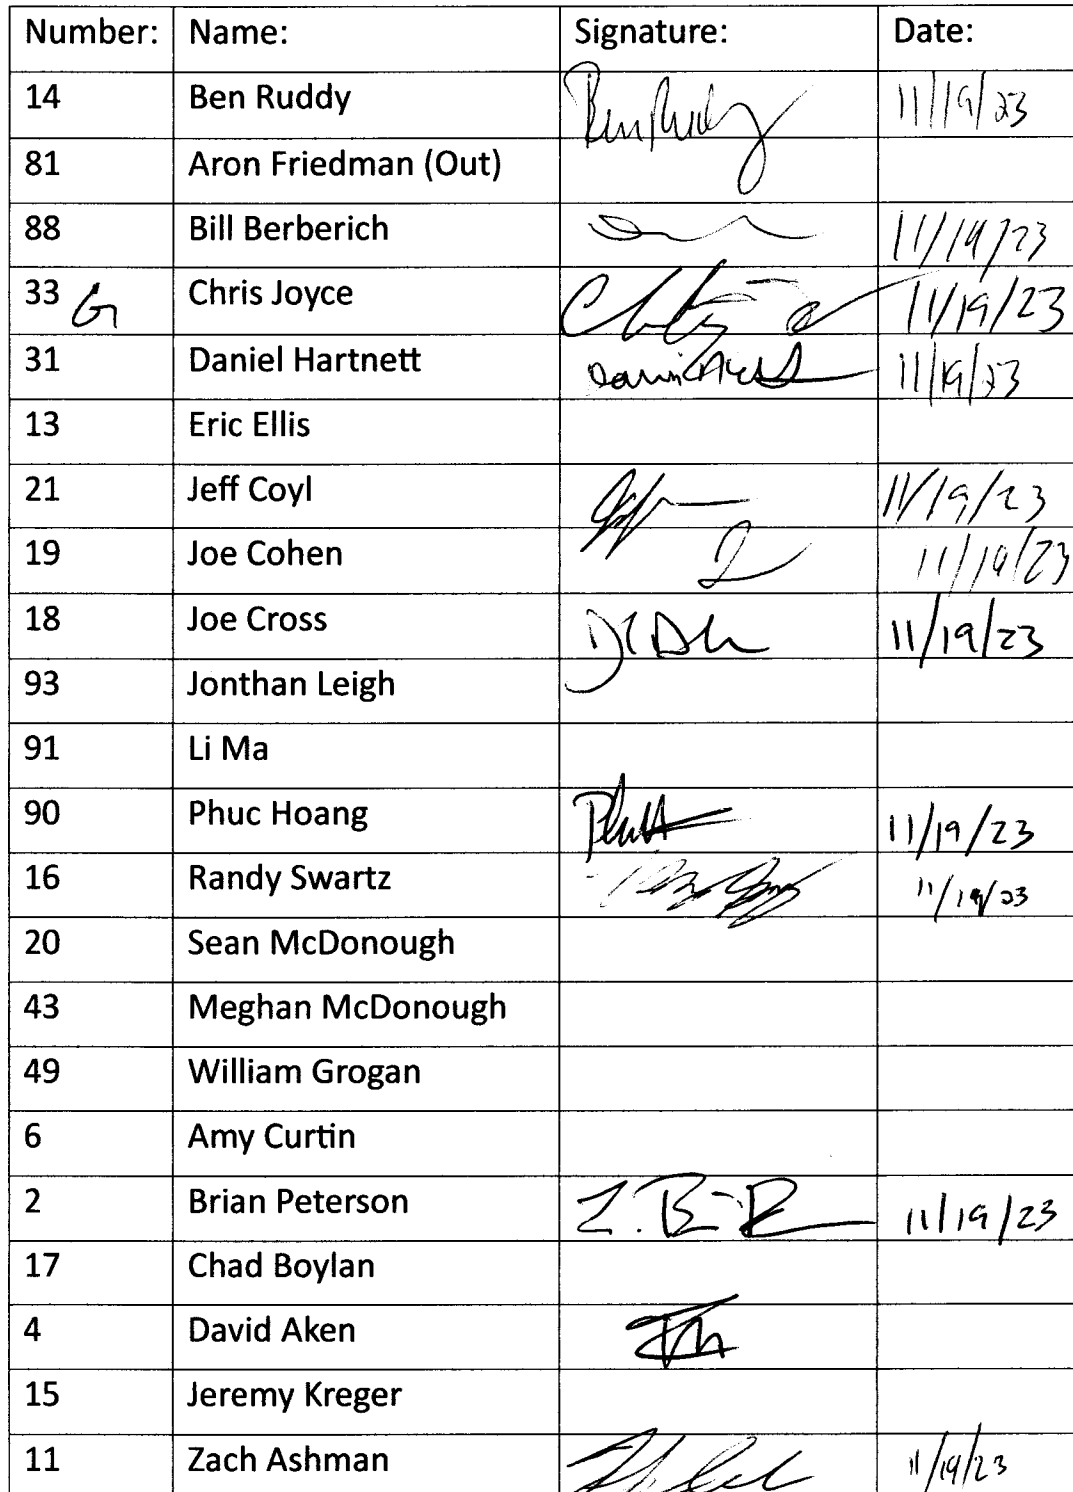 Number: Name: Signature: Date:
14 Ben Ruddy Ben Ruddy 11/19/23
81 Aron Friedman (Out)
88 Bill Berberich 11/19/23
33 G Chris Joyce 11/19/23
31 Daniel Hartnett 11/19/23
13 Eric Ellis
21 Jeff Coyl 11/19/23
19 Joe Cohen 11/19/23
18 Joe Cross 11/19/23
93 Jonthan Leigh
91 Li Ma
90 Phuc Hoang 11/19/23
16 Randy Swartz 11/19/23
20 Sean McDonough
43 Meghan McDonough
49 William Grogan
6 Amy Curtin
2 Brian Peterson 11/19/23
17 Chad Boylan
4 David Aken
15 Jeremy Kreger
11 Zach Ashman 11/19/23